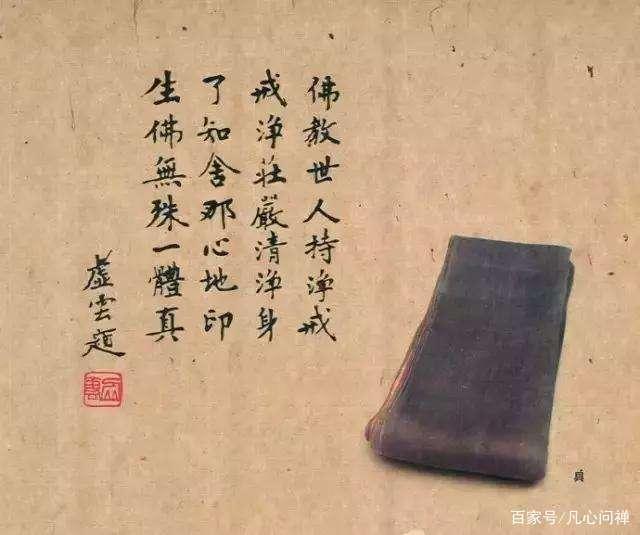 佛教世人持淨戒
戒淨莊嚴清淨身
了知舍那心地印
生佛無殊一體真
虛雲題
百家号/凡心问禅